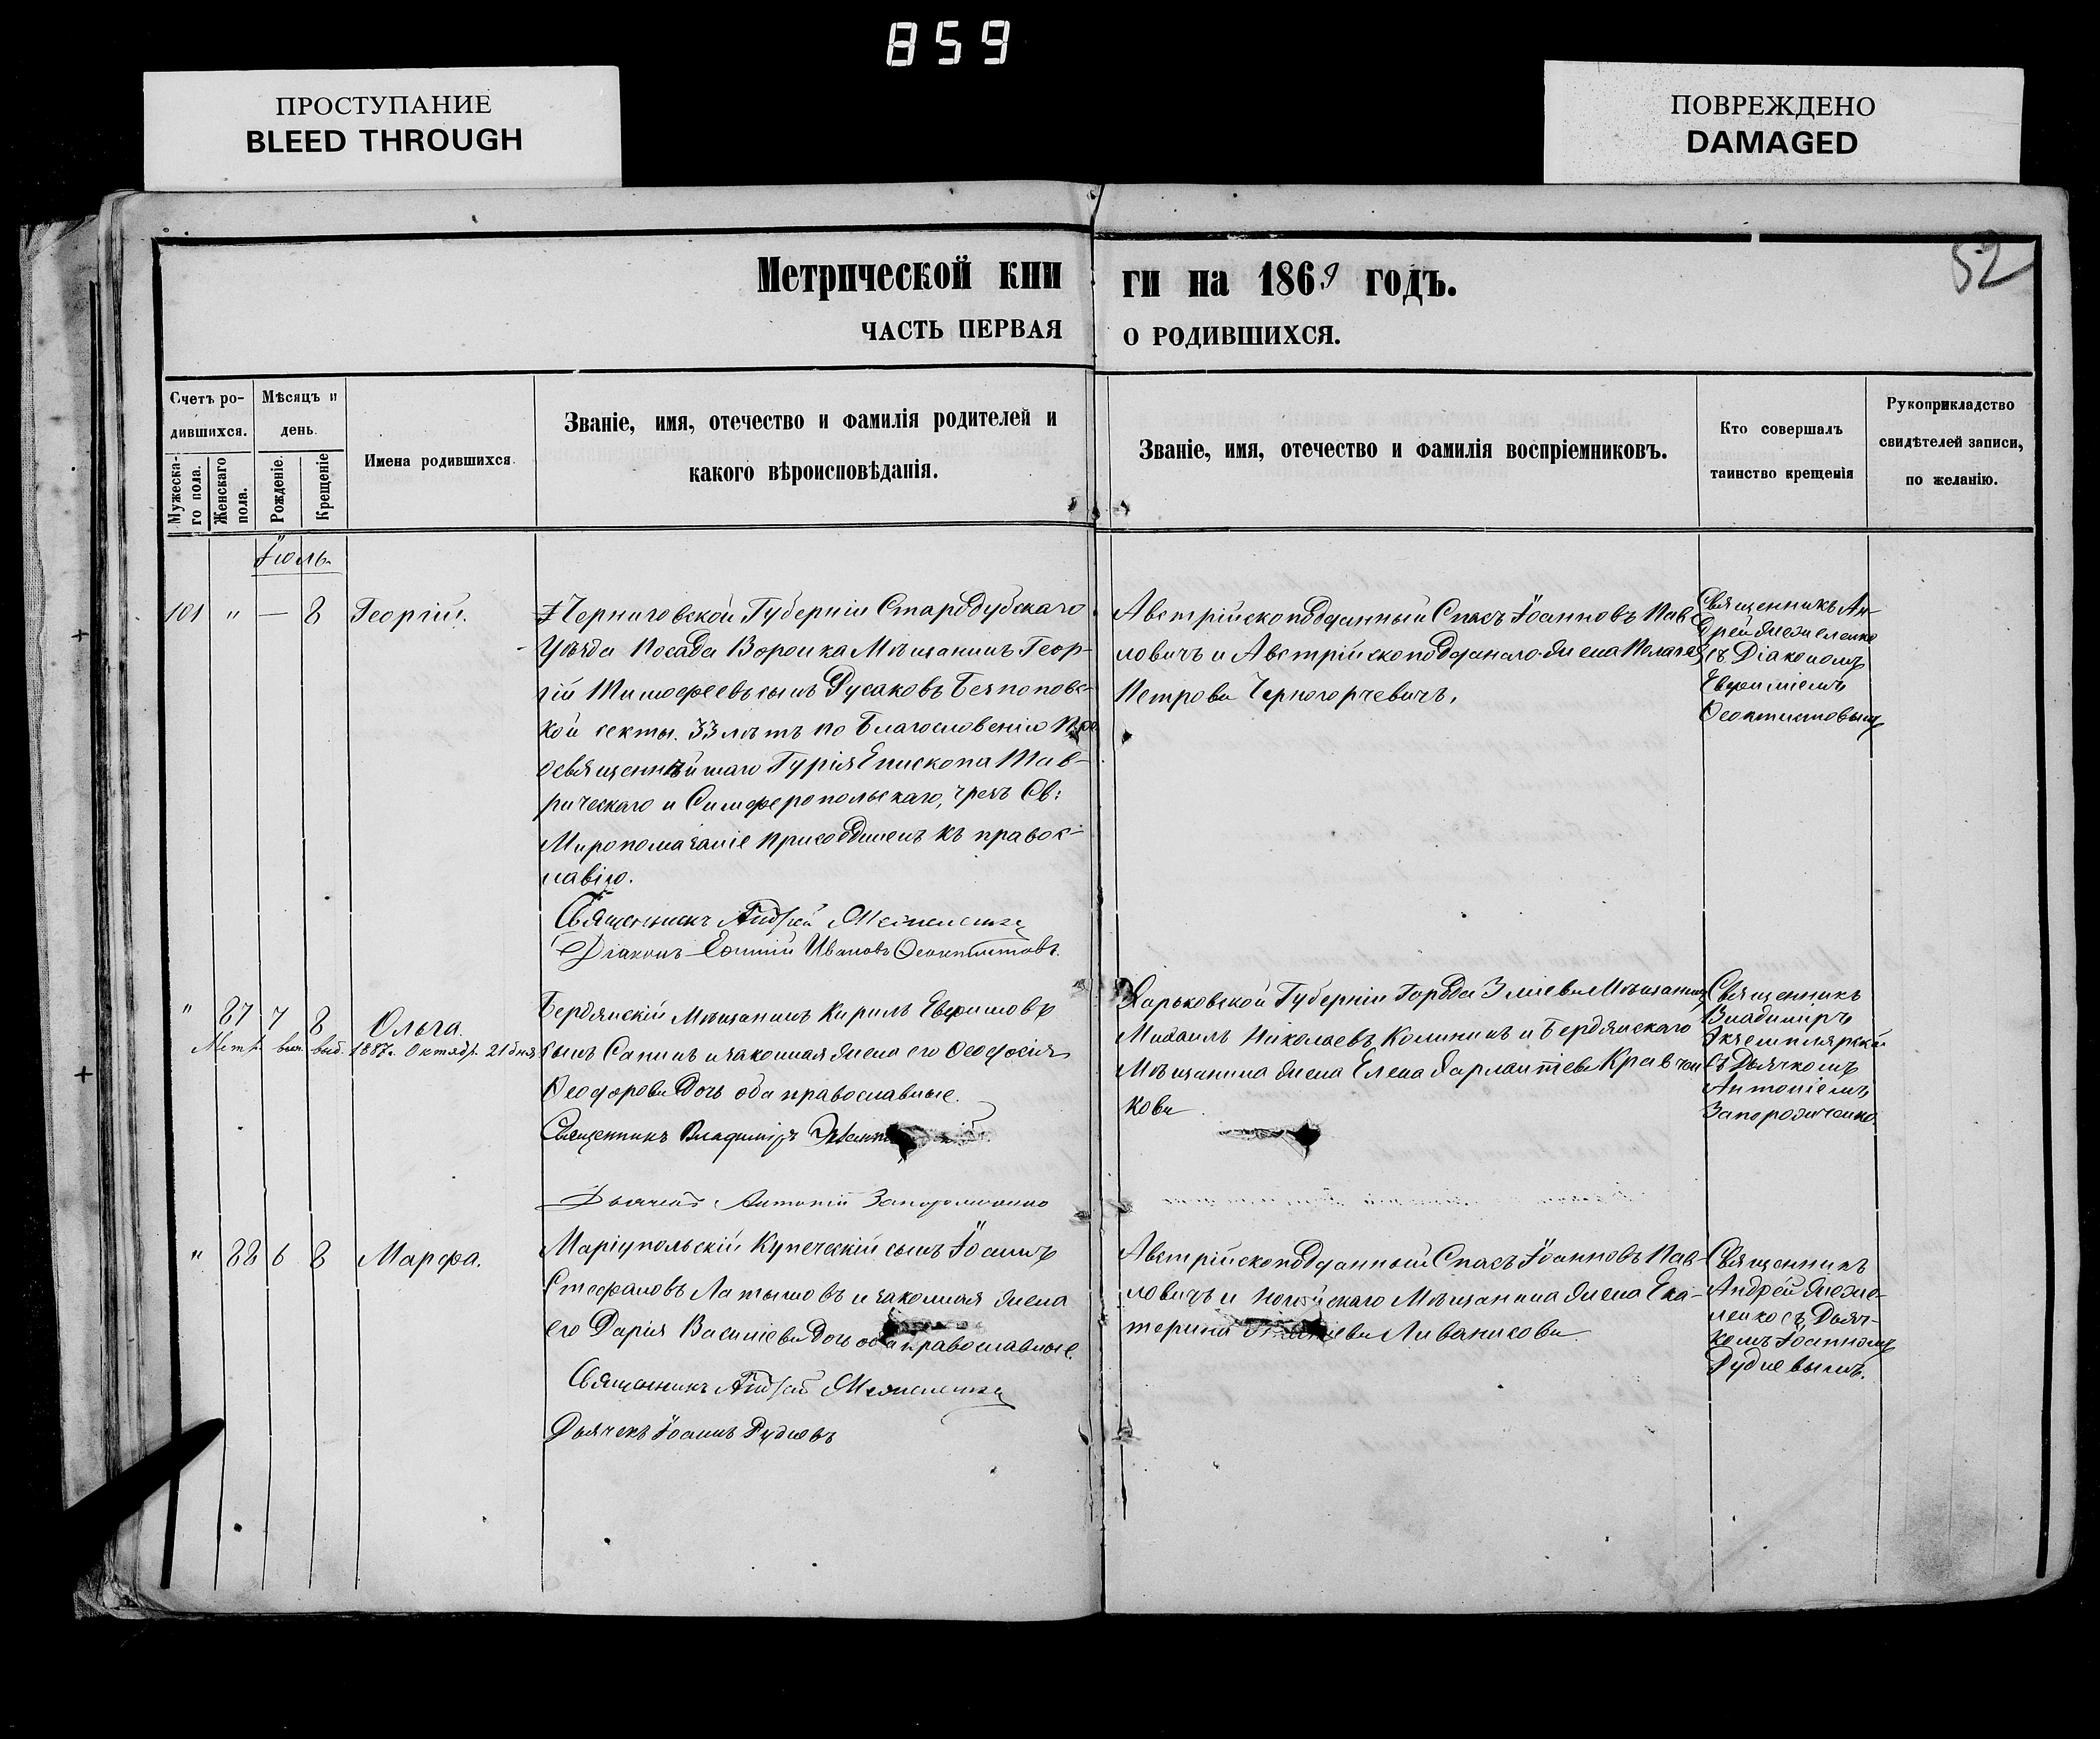 859
ПРОСТУПАНИЕ
BLEED THROUGH
ПОВРЕЖДЕНО
DAMAGED
52
Метрической кни
ги на 1869 годъ.
ЧАСТЬ ПЕРВАЯ
О РОДИВШИХСЯ.
Счетъ ро-
дившихся.
Мужеска-
го пола.
Женскаго
пола.
Мѣсяцъ и
день.
Рожденіе.
Крещеніе
Имена родившихся.
Званіе, имя, отечество и фамилія родителей и
какого вѣроисповѣданія.
Званіе, имя, отечество и фамилія воспріемниковъ.
Кто совершалъ
таинство крещенія
Рукоприкладство
свидѣтелей записи,
по желанію.
Іюль
101 " — 8 Георгій.
Черниговской Губерніи Стародубскаго
Уѣзда Посада Воронка Мѣщанинъ Геор-
гій Тимофеевъ сынъ Русаковъ Безпоповс-
кой секты. 33 лѣтъ по Благословенію Пре
освященнѣйшаго Гурія Епископа Тав-
рическаго и Симферопольскаго, чрезъ Св:
Миропомазаніе присоединенъ къ правос-
лавію.
Священникъ Андрей
Діаконъ Иванов Феоктистовъ.
Австрійскоподданный Спасъ Іоанновъ Пав-
ловичъ и Австрійскоподданаго жена Пелагея
Петрова Черногорчевичъ,
Священникъ Ан-
дрей
съ Діакономъ
Евфиміемъ
Феоктистовымъ
" 87 7 8 Ольга.
Метр. выд. 1887 г. Октябр. 21 дня
Бердянскій мѣщанинъ Кирилъ Евфимовъ
сынъ Сапинъ и законная жена его Феодосія
Феодорова дочь оба православные.
Священникъ Владиміръ
Дьячекъ Антоній Запорожченко
Харьковской Губерніи Города Зміева Мѣщанинъ
Михаилъ Николаевъ Калининъ и Бердянскаго
Мѣщанина жена Елена Харлантіева Кравчен
кова
Священникъ
Владимиръ
Экземплярскій
съ Дьячкомъ
Антоніемъ
Запорожченко.
" 88 6 8 Марфа.
Маріупольскій Купеческій сынъ Іоаннъ
Стефановъ Латышовъ и законная жена
его Дарія Василіева дочь оба православные.
Священникъ Андрей
Дьячекъ Іоаннъ Рудневъ
Австрійскоподданный Спасъ Іоанновъ Пав-
ловичъ и Мѣщанина жена Ека-
терина Ливаникова
Священникъ
Андрей
съ Дьяч-
комъ Іоанномъ
Рудневымъ.